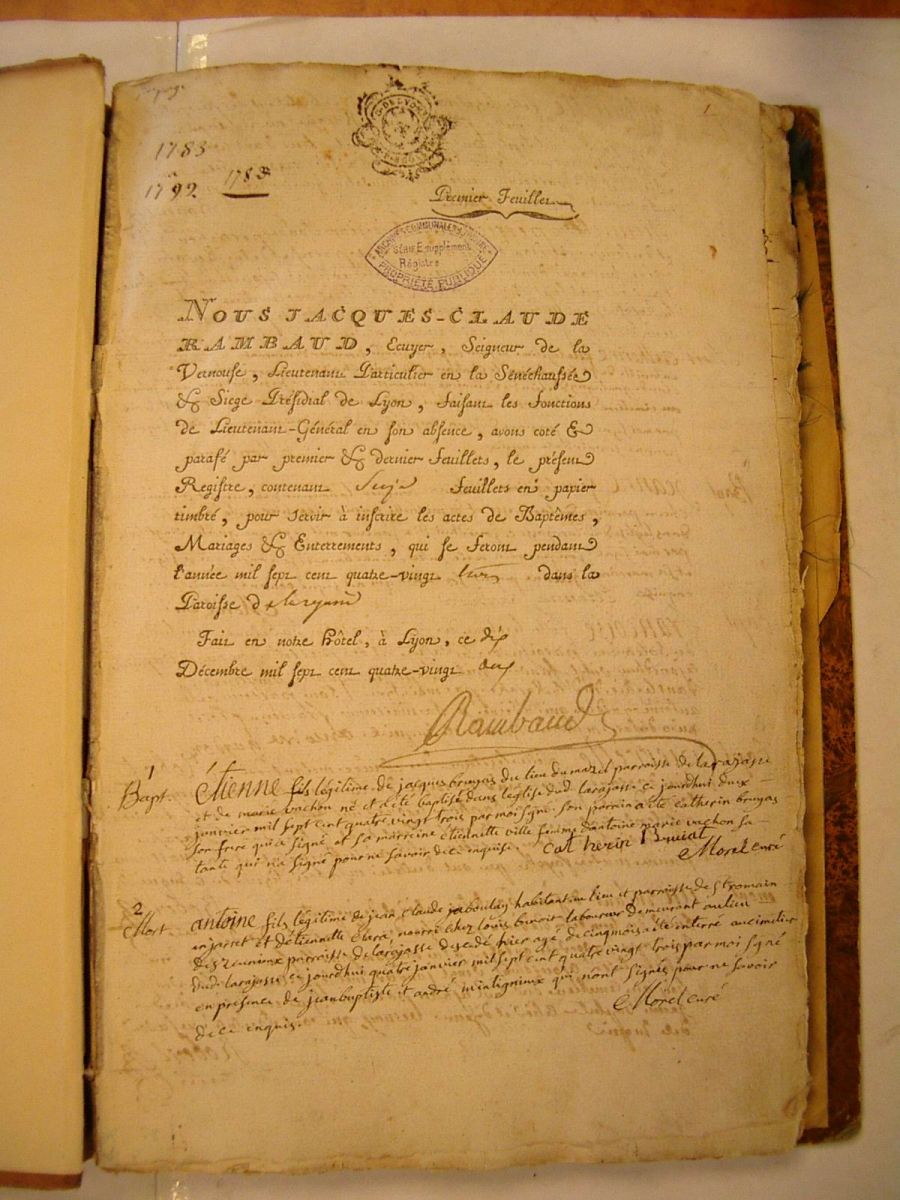 1783
à
1792
1783
Premier Feuillet
1
SÉRIE E supplément
Régistre
PROPRIÉTÉ PUBLIQUE
NOUS JACQUES-CLAUDE
RAMBAUD, Ecuyer, Seigneur de la
Vernouse, Lieutenant Particulier en la Sénéchaussée
& Siege Présidial de Lyon, faisant les fonctions
de Lieutenant-Général en son absence, avons coté &
parafé par premier & dernier Feuillets, le présent
Registre, contenant Seize Feuillets en papier
timbré, pour servir à inscrire les actes de Baptêmes,
Mariages & Enterrements, qui se feront pendant
l'année mil sept cent quatre-vingt trois dans la
Paroisse de
Fait en notre hôtel, à Lyon, ce dix
Décembre mil sept cent quatre-vingt deux
Rambaud
1
Bapt. étienne fils légitime de jacques bruyas du lieu du mazel parroisse de larajasse
et de marie vachon né et a été baptisé dans léglise dud larajasse ce jourdhui deux
janvier mil sept cent quatre vingt trois par moi signé. son parrain a été catherin bruyas
son frere qui a signé et sa marreine étiennette ville femme dantoine marie vachon sa
tante qui na signé pour ne savoir de ce enquise. Catherin Bruiat
Morel curé
2
Mort. antoine fils légitime de jean claude jaboulay habitant au lieu et parroisse de st romain
en jarret et détiennette nourri chez louis benoit laboureur demeurant au lieu
des parroisse de larajasse décédé hier agé de cinq mois a été enterré au cimetiere
dud larajasse ce jourdhui quatre janvier mil sept cent quatre vingt trois par moi signé
en présence de jean baptiste et andré qui nont signés pour ne savoir
de ce enquis. Morel curé